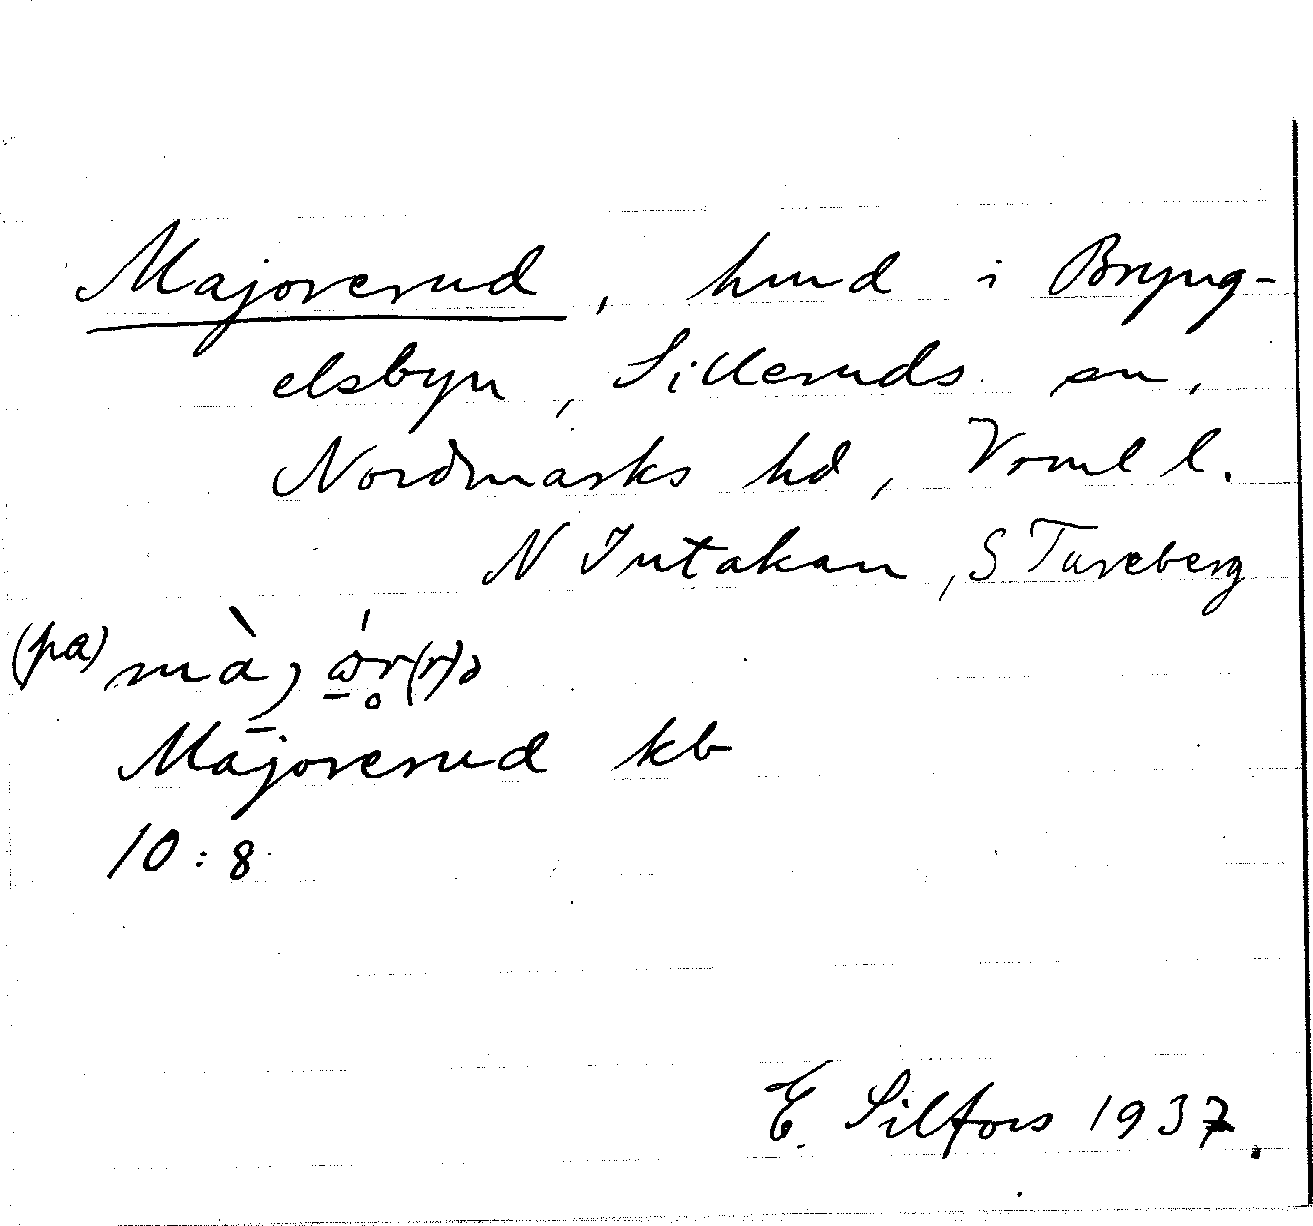 Majorerud, hmd i Bryng-
elsbyn, Silleruds sn,
Nordmarks hd, Vrml l.
N Intakan, S Tureberg
(pa)
Majorerud kb
10:8
E. Silfors 1937.